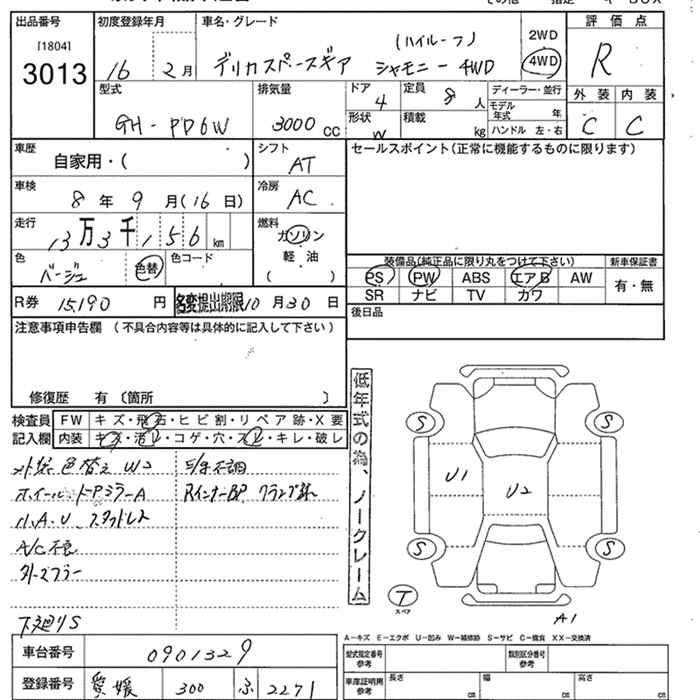 出品番号
[1804]
3013
初度登録年月
16 2月
車名・グレード
デリカスペースギア
(ハイルーフ)
シャモニー 4WD
2WD
4WD
評価点
R
型式
GH-PD6W
排気量
3000cc
ドア
4
定員
8人
形状
W
積載
kg
ディーラー・並行
モデル年式 年
ハンドル 左・右
外装 内装
C C
車歴
自家用・( )
シフト
AT
セールスポイント(正常に機能するものに限ります)
車検
8年9月(16日)
冷房
AC
走行
13万3千156km
燃料
ガソリン
軽油
( )
色
ベージュ
色替
色コード
装備品(純正品に限り丸をつけて下さい)
PS PW ABS エアB AW
SR ナビ TV カワ
新車保証書
有・無
R券 15,190円
名変提出期限10月30日
後日品
注意事項申告欄 (不具合内容等は具体的に記入して下さい)
修復歴 有 〔箇所 〕
検査員記入欄
FW キズ・飛石・ヒビ割・リペア跡・X要
内装 キズ・汚レ・コゲ・穴・スレ・キレ・破レ
外装色替え W2
ホイール、ドアミラーA
小A.U. スタッドレス
A/C不良
下廻りS
低年式の為、ノークレーム
S S
U1 U2
S S
T
スペア
A1
A-キズ E-エクボ U-凹み W-補修跡 S-サビ C-腐食 XX-交換済
車台番号
0901329
登録番号
愛媛 300 ふ 2271
型式指定番号 参考
類別区分番号 参考
車庫証明用 参考
長さ cm
幅 cm
高さ cm